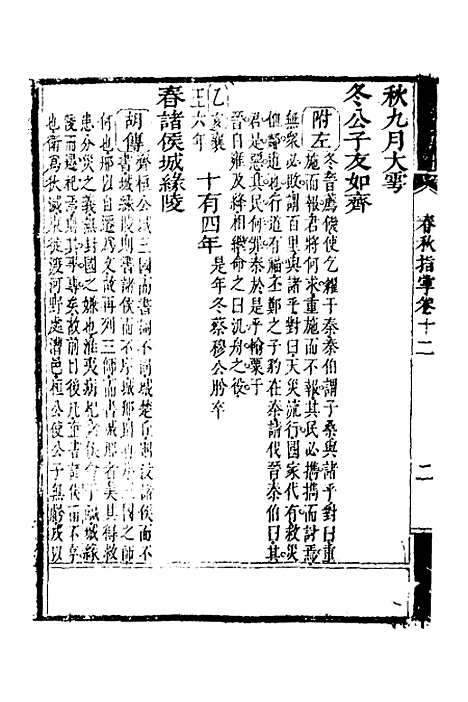 秋九月大雩
冬公子友如齊
附左 冬晉薦饑使乞糴于秦秦伯謂子桑與諸乎對曰重
施而報君將何求重施而不報其民必攜攜而討焉
無衆必敗謂百里與諸乎對曰天災流行國家代有救災
恤鄰道也行道有福丕鄭之子豹在秦請伐晉秦伯曰其
君是惡其民何罪秦於是乎輸粟于
晉自雍及絳相繼命之曰汎舟之役
乙亥襄王六年 十有四年 是年冬蔡穆公肸卒
春諸侯城緣陵
胡傳 齊桓公城三國而書詞不同城楚丘則沒諸侯而不
書城緣陵則書諸侯而不序城邢則再列三國之師
何也邢以自遷為文故再列三師而書城邢者美其得救
患分災之義無封國之嫌也淮夷病杞諸侯會于鹹城緣
陵而遷杞焉則其事專矣故前目後凡直書諸侯而不序
也衛為狄滅東徙渡河野處漕邑桓公使公子無虧戍以
春秋指掌卷十二
二